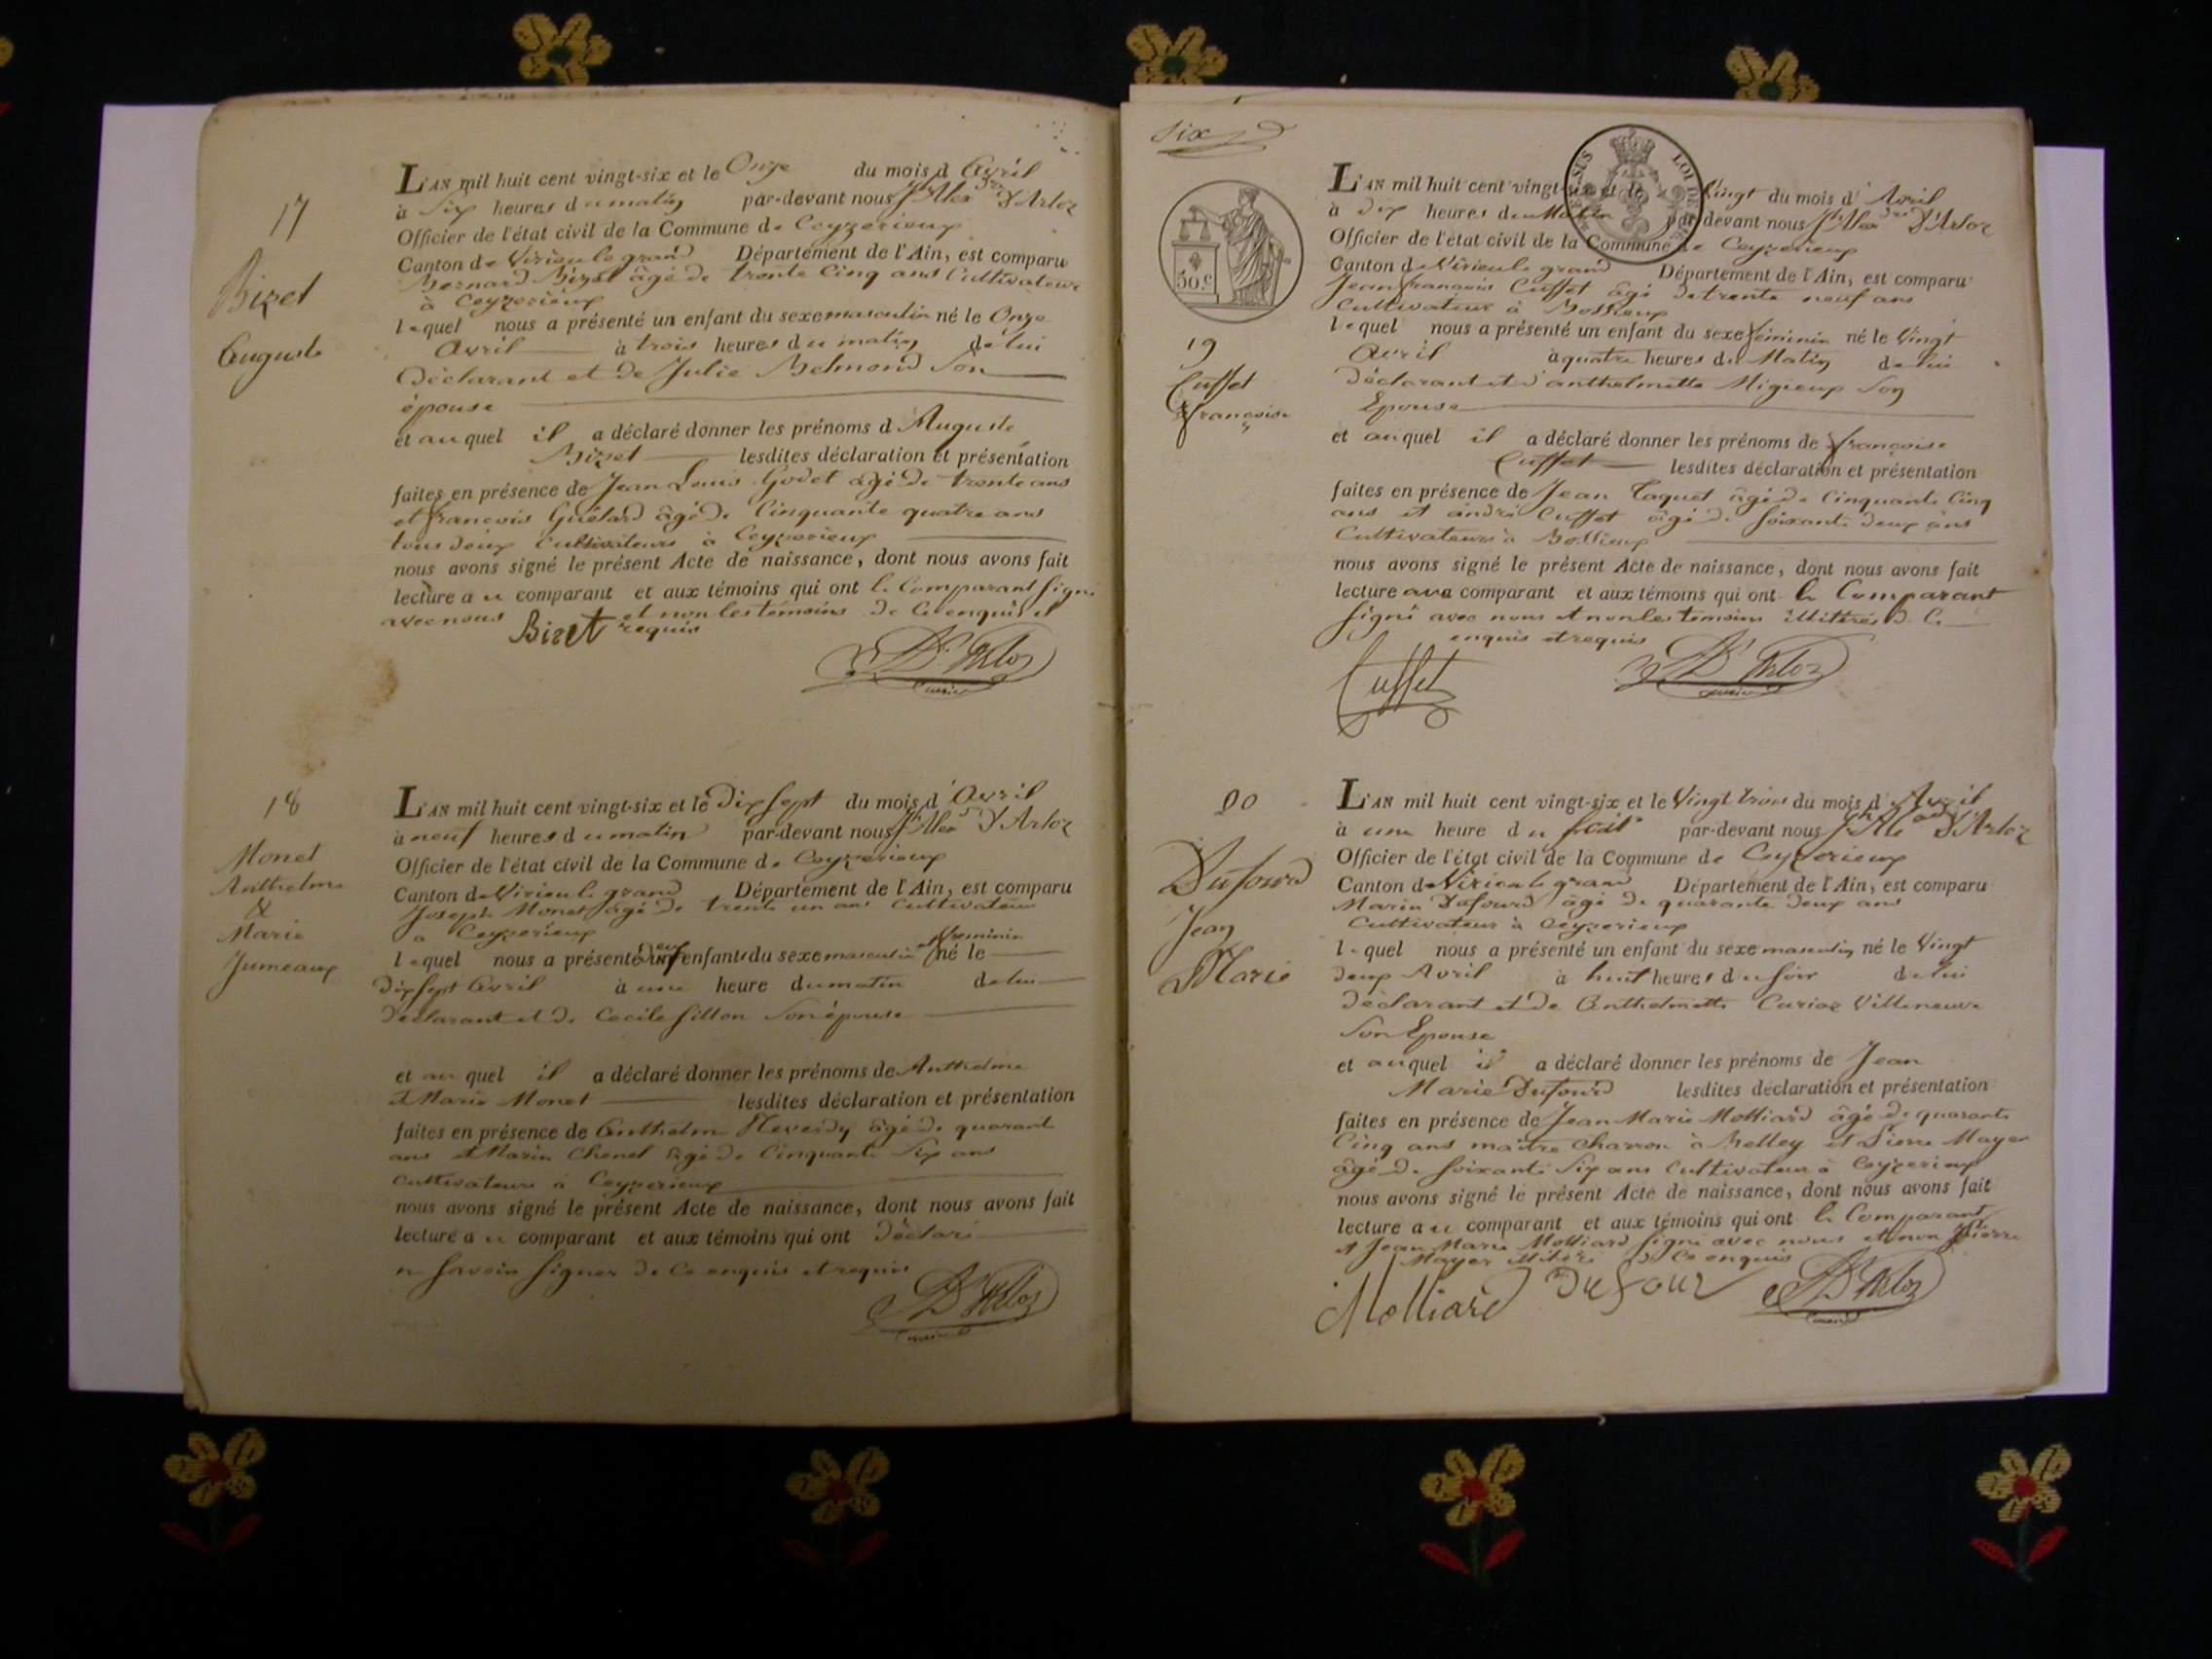 17
Bizet
Auguste
L'AN mil huit cent vingt-six et le Onze du mois d'Avril
à Six heures du matin par-devant nous Jh Alexdre D'Arloz
Officier de l'état civil de la Commune de Ceyzerieux
Canton de Virieu le grand Département de l'Ain, est comparu
Bernard Bizet âgé de trente Cinq ans Cultivateur
à Ceyzerieux
lequel nous a présenté un enfant du sexe masculin né le Onze
Avril à trois heures du matin de lui
Déclarant et de Julie Belmond Son
épouse
et auquel il a déclaré donner les prénoms d'Auguste
Bizet lesdites déclaration et présentation
faites en présence de Jean Louis Godet âgé de trente ans
et françois Guélard âgé de Cinquante quatre ans
tous deux Cultivateurs à Ceyzerieux
nous avons signé le présent Acte de naissance, dont nous avons fait
lecture au comparant et aux témoins qui ont le Comparant signé
avec nous et non les témoins de Ce enquis et
requis
Bizet
D'Arloz
18
Monet
Anthelme
&
Marie
Jumeaux
L'AN mil huit cent vingt-six et le Dix sept du mois d'Avril
à neuf heures du matin par-devant nous Jh Alexdre D'Arloz
Officier de l'état civil de la Commune de Ceyzerieux
Canton de Virieu le grand Département de l'Ain, est comparu
Joseph Monet âgé de trente un ans Cultivateur
à Ceyzerieux
lequel nous a présenté deux enfants du sexe masculin et feminin né le
dix sept Avril à une heure du matin de lui
déclarant et de Cecile fillon Son épouse
et auquel il a déclaré donner les prénoms de Anthelme
& Marie Monet lesdites déclaration et présentation
faites en présence de Anthelme Reverdy âgé de quarante
ans et Marin Chenel âgé de Cinquante Six ans
Cultivateurs à Ceyzerieux
nous avons signé le présent Acte de naissance, dont nous avons fait
lecture au comparant et aux témoins qui ont Déclaré
ne Savoir Signer de Ce enquis et requis
D'Arloz
Six
50.c
LOI DE
19
Cuffet
françoise
L'AN mil huit cent vingt-six et le Vingt du mois d'Avril
à Dix heures du Matin par-devant nous Jh Alexdre D'Arloz
Officier de l'état civil de la Commune de Ceyzerieux
Canton de Virieu le grand Département de l'Ain, est comparu
Jean françois Cuffet âgé de trente neuf ans
Cultivateur à Bossieux
lequel nous a présenté un enfant du sexe féminin né le Vingt
Avril à quatre heures du Matin de lui
déclarant et d'anthelmette Migieux Son
Epouse
et auquel il a déclaré donner les prénoms de françoise
Cuffet lesdites déclaration et présentation
faites en présence de Jean Taquet âgé de Cinquante Cinq
ans et andré Cuffet âgé de Soixante deux ans
Cultivateurs à Bossieux
nous avons signé le présent Acte de naissance, dont nous avons fait
lecture au comparant et aux témoins qui ont le Comparant
Signé avec nous et non les témoins illitérés de Ce
enquis et requis
Cuffet
D'Arloz
20
Dufourd
Jean
Marie
L'AN mil huit cent vingt-six et le Vingt trois du mois d'Avril
à une heure du Soir par-devant nous Jh Alexdre D'Arloz
Officier de l'état civil de la Commune de Ceyzerieux
Canton de Virieu le grand Département de l'Ain, est comparu
Marin Dufourd âgé de quarante deux ans
Cultivateur à Ceyzerieux
lequel nous a présenté un enfant du sexe masculin né le Vingt
deux Avril à huit heures du Soir de lui
déclarant et de Anthelmette Curioz Villeneuve
Son Epouse
et auquel il a déclaré donner les prénoms de Jean
Marie Dufourd lesdites déclaration et présentation
faites en présence de Jean Marie Molliard âgé de quarante
Cinq ans maître Charron à Belley et Pierre Mayer
âgé de Soixante Six ans Cultivateur à Ceyzerieux
nous avons signé le présent Acte de naissance, dont nous avons fait
lecture au comparant et aux témoins qui ont le Comparant
et Jean Marie Molliard Signé avec nous et non Pierre
Mayer illitéré de Ce enquis
Molliard
Dufour
D'Arloz